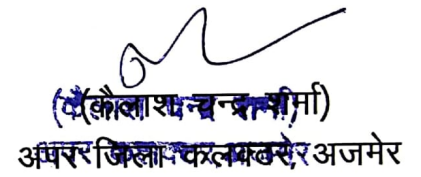 (कैलाश चन्द्र शर्मा)
अपर जिला कलक्टर, अजमेर